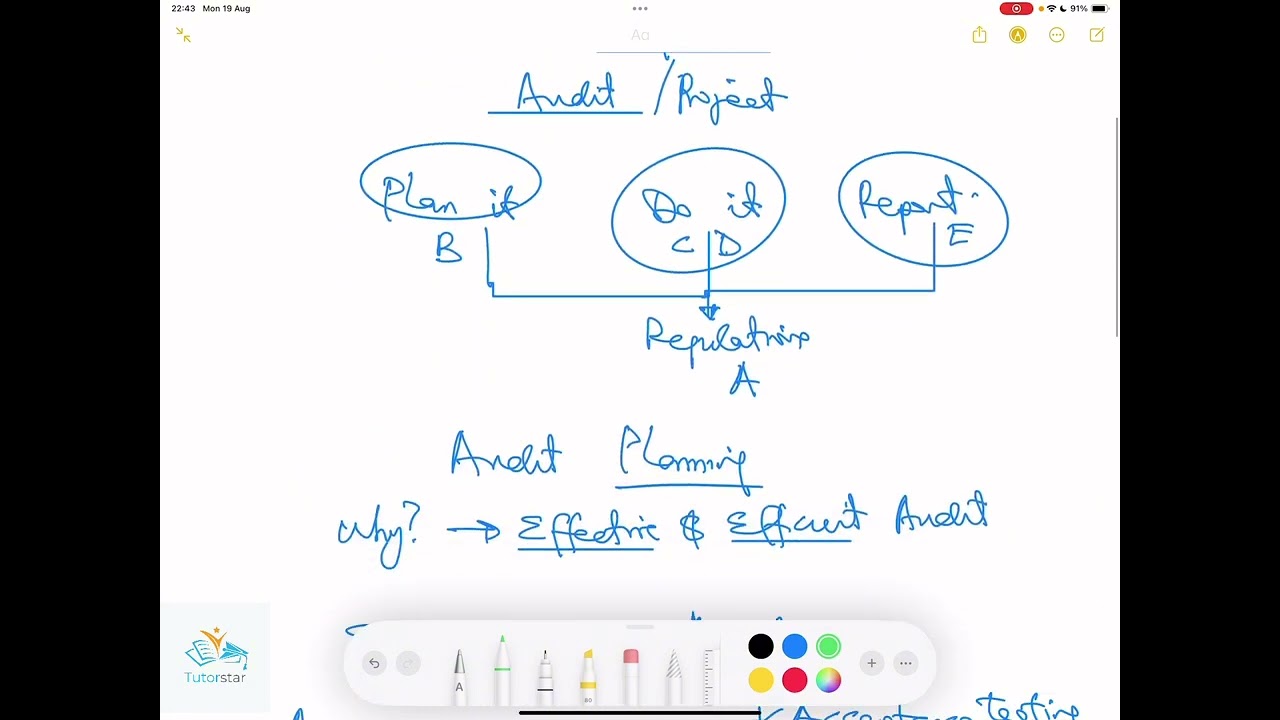 22:43 Mon 19 Aug
91%
Aa
Audit / Project
Plan it Do it Report.
B C D E
Regulations
A
Audit Planning
Why? → Effective & Efficient Audit
A
80
Tutorstar
Acceptance testing